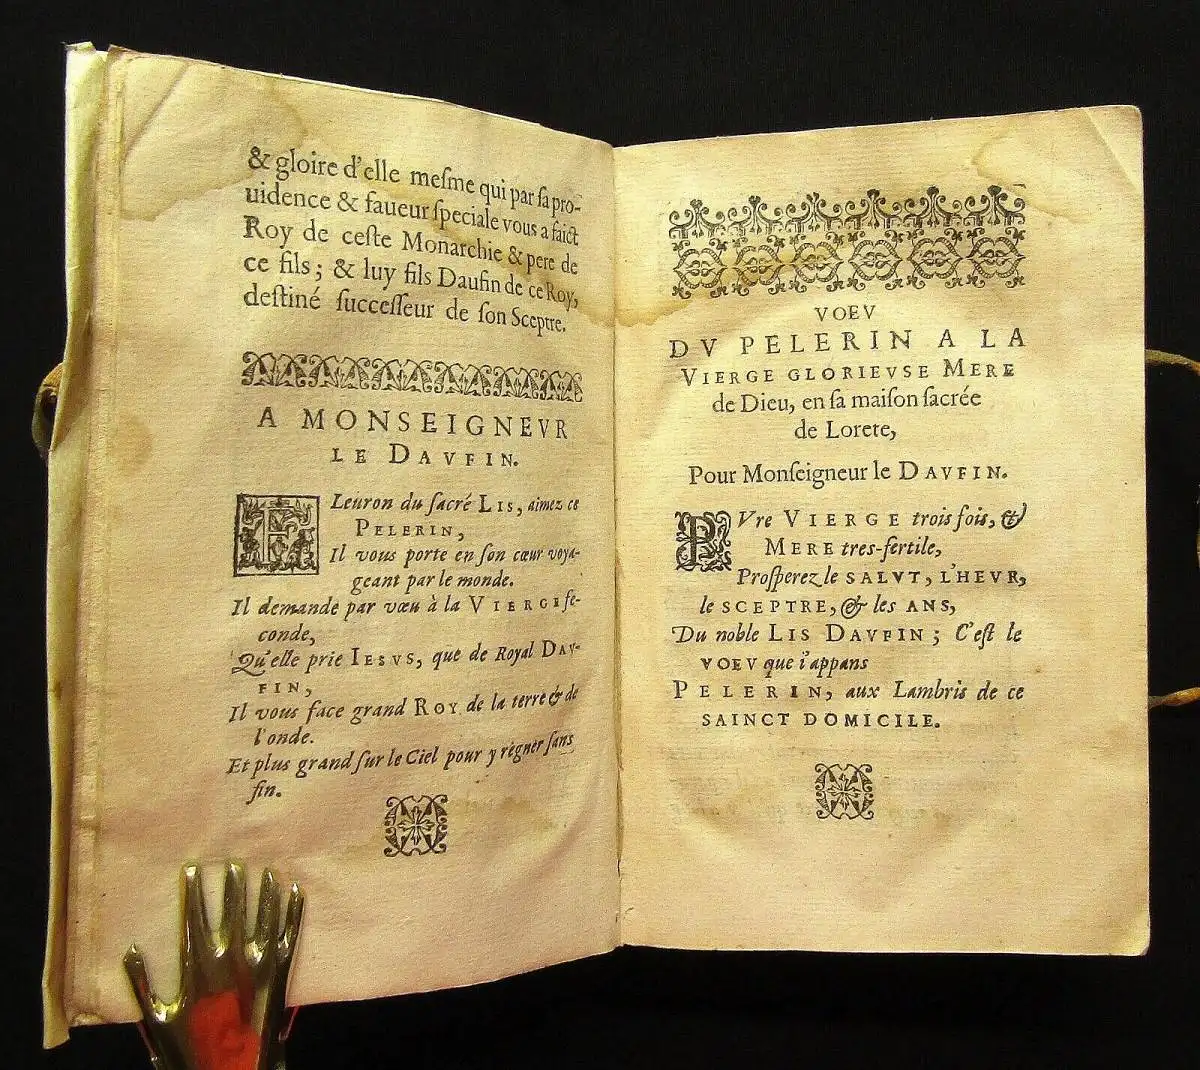 & gloire d'elle meſme qui par ſa pro-
uidence & faueur ſpeciale vous a faict
Roy de ceſte Monarchie & pere de
ce fils; & luy fils Daufin de ce Roy,
deſtiné ſucceſſeur de ſon Sceptre.
A MONSEIGNEVR
LE DAVFIN.
FLeuron du ſacré LIS, aimez ce
PELERIN,
Il vous porte en ſon cœur voya-
geant par le monde.
Il demande par vœu à la VIERGE fe-
conde,
Qu'elle prie IESVS, que de Royal DAV-
FIN,
Il vous face grand ROY de la terre & de
l'onde.
Et plus grand ſur le Ciel pour y regner ſans
fin.
VOEV
DV PELERIN A LA
VIERGE GLORIEVSE MERE
de Dieu, en ſa maiſon ſacrée
de Lorete,
Pour Monſeigneur le DAVFIN.
PVre VIERGE trois fois, &
MERE tres-fertile,
Proſperez le SALVT, L'HEVR,
le SCEPTRE, & les ANS,
Du noble LIS DAVFIN; C'eſt le
VOEV que i'appans
PELERIN, aux Lambris de ce
SAINCT DOMICILE.